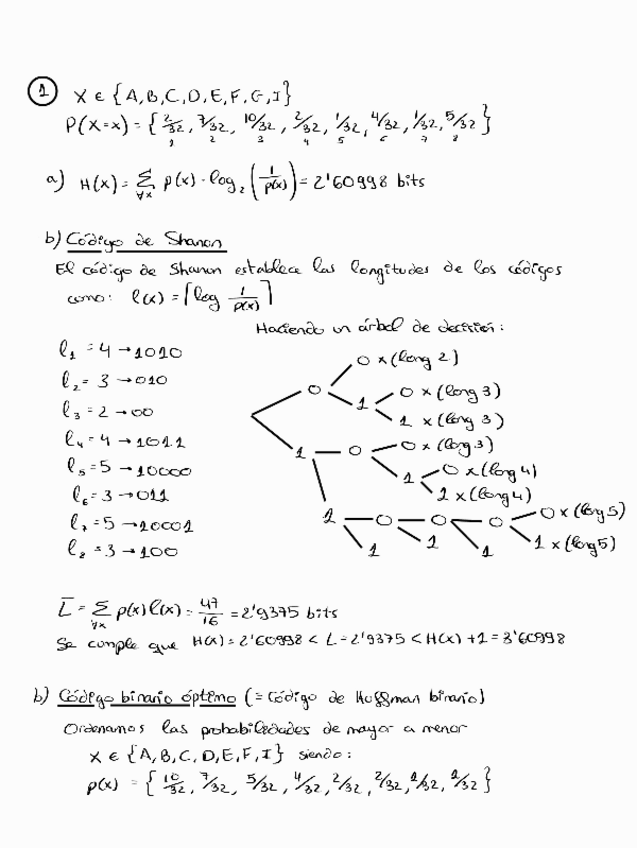 1 X ∈ {A,B,C,D,E,F,G,I}
P(X=x) = {2/32, 7/32, 10/32, 2/32, 1/32, 4/32, 1/32, 5/32}
1 2 3 4 5 6 7 8
a) H(x) = Σ∀x p(x) · log₂ (1/p(x)) = 2'60998 bits
b) Código de Shanon
El código de Shanon establece las longitudes de los códigos
como: l(x) = ⌈log 1/p(x)⌉
Haciendo un árbol de decisión:
l₁ = 4 → 1010
l₂ = 3 → 010
l₃ = 2 → 00
l₄ = 4 → 1011
l₅ = 5 → 10000
l₆ = 3 → 011
l₇ = 5 → 10001
l₈ = 3 → 100
0 x (long 2)
0 1 0 x (long 3)
1 x (long 3)
1 0 0 x (long 3)
1 0 x (long 4)
1 x (long 4)
1 0 0 0 0 x (long 5)
1 1 1 1 x (long 5)
L̅ = Σ∀x p(x) l(x) = 47/16 = 2'9375 bits
Se cumple que H(x) = 2'60998 < L = 2'9375 < H(x) + 1 = 3'60998
b) Código binario óptimo (= Código de Huffman binario)
Ordenamos las probabilidades de mayor a menor
X ∈ {A,B,C,D,E,F,I} siendo:
p(x) = {10/32, 7/32, 5/32, 4/32, 2/32, 2/32, 1/32, 1/32}